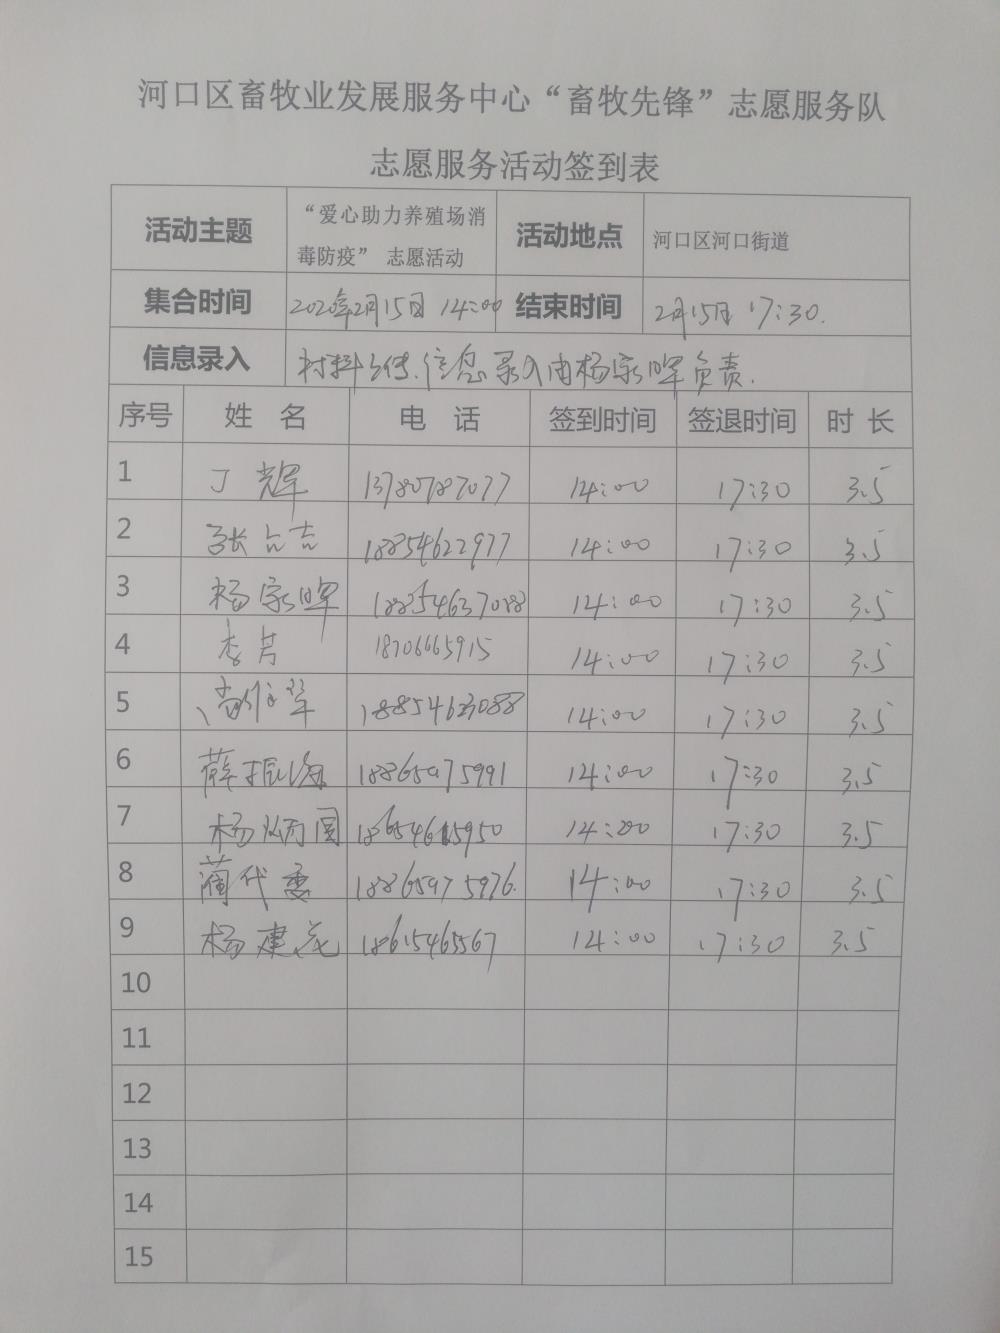 河口区畜牧业发展服务中心“畜牧先锋”志愿服务队
志愿服务活动签到表
活动主题 “爱心助力养殖场消 活动地点 河口区河口街道
毒防疫” 志愿活动
集合时间 2020年2月15日 14:00 结束时间 2月15日 17:30.
信息录入 材料上传、信息录入由杨家晖负责.
序号 姓 名 电 话 签到时间 签退时间 时 长
1 丁辉 13780787077 14:00 17:30 3.5
2 张吉 18854622977 14:00 17:30 3.5
3 杨家晖 18854637088 14:00 17:30 3.5
4 李芳 18706665915 14:00 17:30 3.5
5 18854623088 14:00 17:30 3.5
6 薛振海 18865975991 14:00 17:30 3.5
7 杨炳国 18654615950 14:00 17:30 3.5
8 蔺代 18865975976. 14:00 17:30 3.5
9 杨建 18615465567 14:00 17:30 3.5
10
11
12
13
14
15